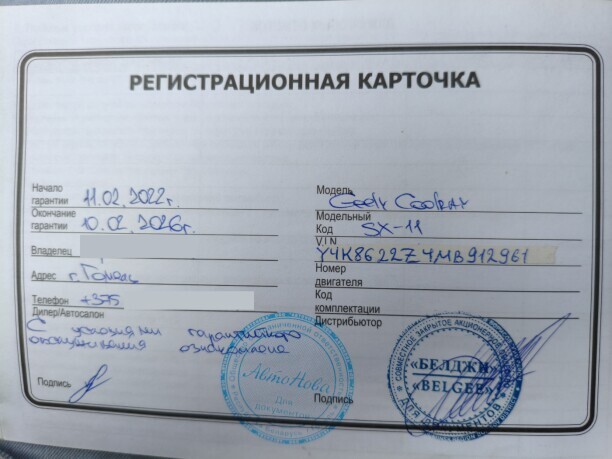 РЕГИСТРАЦИОННАЯ КАРТОЧКА
Начало гарантии 11.02.2022г.
Окончание гарантии 10.02.2026г.
Владелец
Адрес г. Гомель
Телефон +375
Дилер/Автосалон
С условиями гарантийного
обслуживания ознакомлена
Подпись
АвтоНова
Для документов
Модель Geely Coolray
Модельный Код SX-11
V.I.N Y4K8622Z4MB912961
Номер двигателя
Код комплектации
Дистрибьютор
СОВМЕСТНОЕ ЗАКРЫТОЕ АКЦИОНЕРНОЕ
«БЕЛДЖИ»
«BELGEE»
ДЛЯ ДОКУМЕНТОВ
Подпись